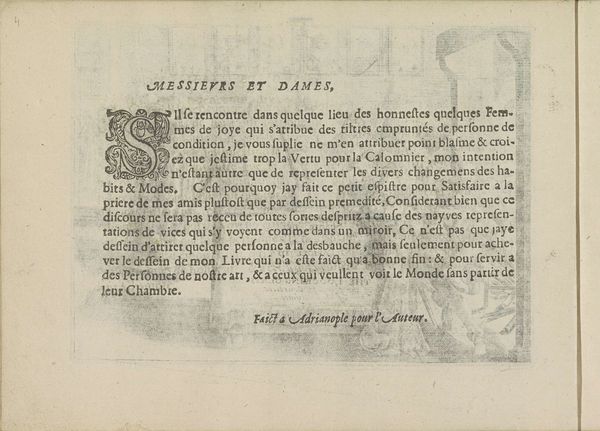 4
MESSIEVRS ET DAMES,
SIl se rencontre dans quelque lieu des honnestes quelques Fem-
mes de joye qui s'attribue des tiltres empruntés de personne de
condition, je vous suplie ne m'en attribuer point blasme & croi-
ez que jestime trop la Vertu pour la Calomnier, mon intention
n'estant autre que de representer les divers changemens des ha-
bits & Modes. C'est pourquoy jay fait ce petit espistre pour Satisfaire a la
priere de mes amis plustost que par dessein premedité, Considerant bien que ce
discours ne sera pas receu de toutes sortes despritz a cause des nayves represen-
tations de vices qui s'y voyent comme dans un miroir, Ce n'est pas que jaye
dessein d'attirer quelque personne a la desbauche, mais seulement pour ache-
ver le dessein de mon Livre qui n'a este faict qu'a bonne fin: & pour servir a
des Personnes de nostre art, & a ceux qui veullent voit le Monde sans partir de
leur Chambre.
Faict a Adrianople pour l'Auteur.